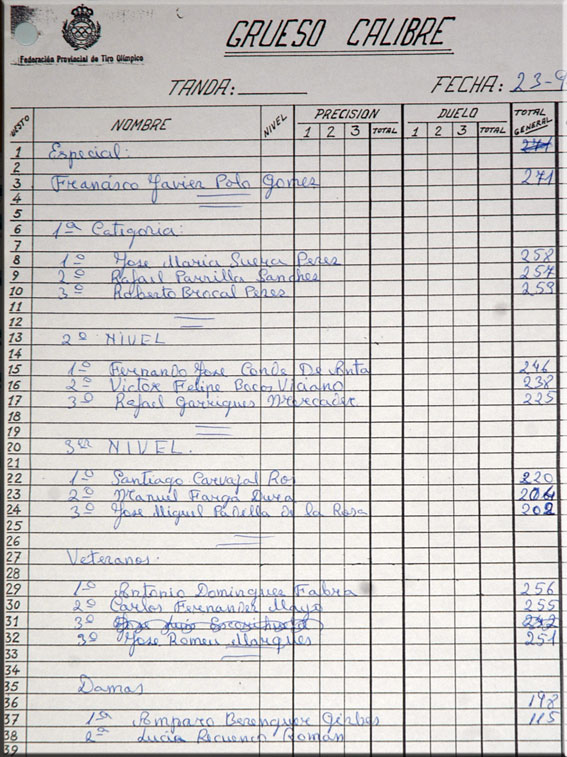 Federación Provincial de Tiro Olímpico
GRUESO CALIBRE
TANDA:
FECHA: 23-9
NOMBRE NIVEL PRECISION DUELO TOTAL GENERAL
1 2 3 TOTAL 1 2 3 TOTAL
1 Especial: 271
2
3 Francisco Javier Polo Gomez 271
4
5
6 1ª Categoria:
7
8 1º Jose Maria Perez 258
9 2º Rafael Parrilla Sanches 257
10 3º Roberto Brocal Perez
11
12
13 2º NIVEL
14
15 1º Fernando Jose Conde De Anta 246
16 2º Victor Felipe Bocos Viciano 238
17 3º Rafael Garrigues Mercader 225
18
19
20 3er NIVEL.
21
22 1º Santiago Carvajal Ros 220
23 2º Manuel Farga Dura 204
24 3º Jose Miguel Padella de la Rosa 202
25
26
27 Veteranos.
28
29 1º Antonio Dominguez Fabra 256
30 2º Carlos Fernandez Mayo 255
31 3º Jose Luis
32 3º Jose Romeu Marques 251
33
34
35 Damas
36 198
37 1ª Amparo Berenguer Girbes 115
38 2ª Lucia Recuenco Roman
39